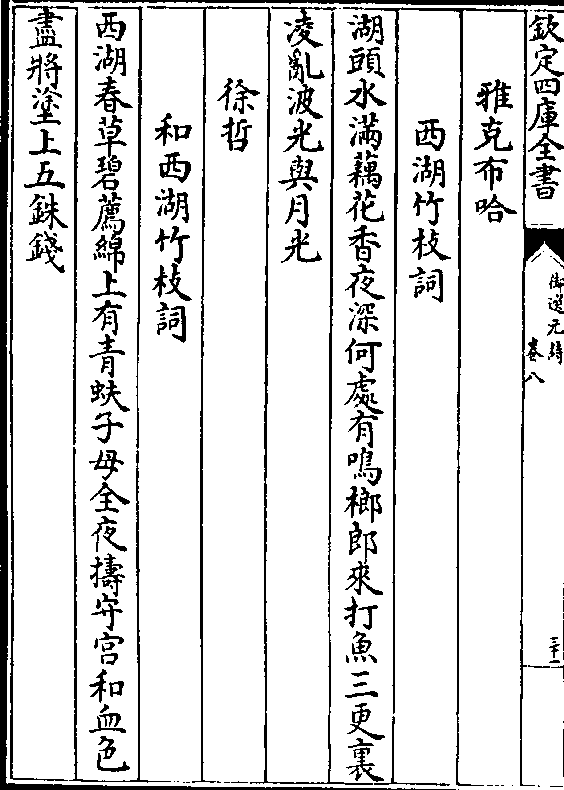 欽定四庫全書
御選元詩
卷八
三十一
雅克布哈
西湖竹枝詞
湖頭水滿藕花香夜深何處有鳴榔郎來打魚三更裏
凌亂波光與月光
徐哲
和西湖竹枝詞
西湖春草碧薦綿上有青蚨子母全夜擣守宫和血色
盡將塗上五銖錢